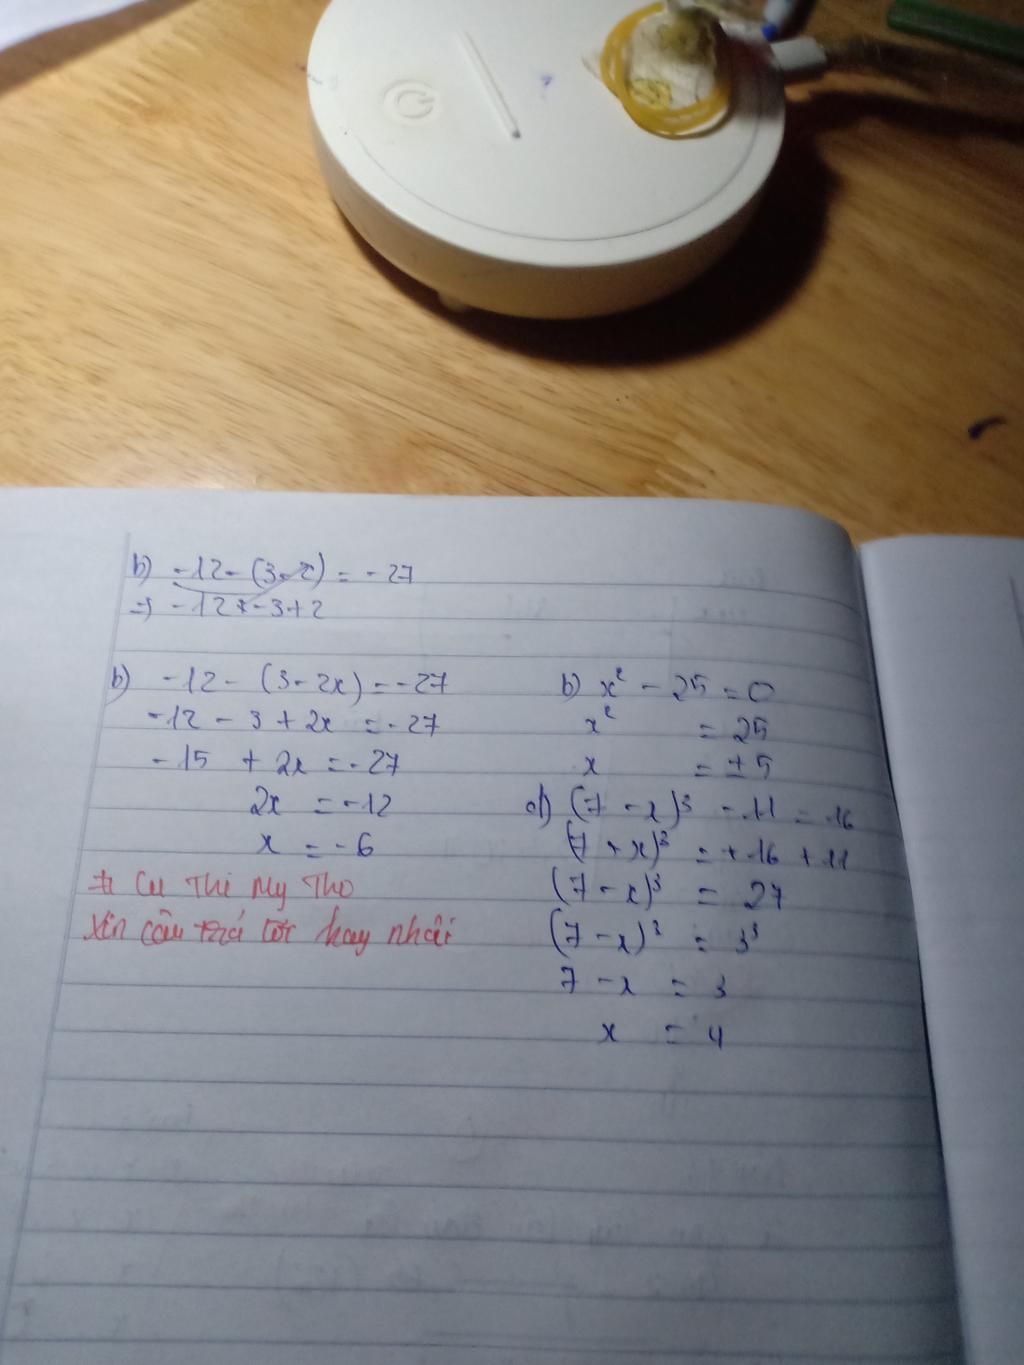 b) -12 - (3 - 2) = -27
=> -12 + -3 + 2
b) -12 - (3 - 2x) = -27
-12 - 3 + 2x = -27
-15 + 2x = -27
2x = -12
x = -6
# Cu Thi My Tho
Xin câu trả lời hay nhất
b) x² - 25 = 0
x² = 25
x = ±5
d) (7 - x)³ - 11 = 16
(7 - x)³ = +16 + 11
(7 - x)³ = 27
(7 - x)³ = 3³
7 - x = 3
x = 4